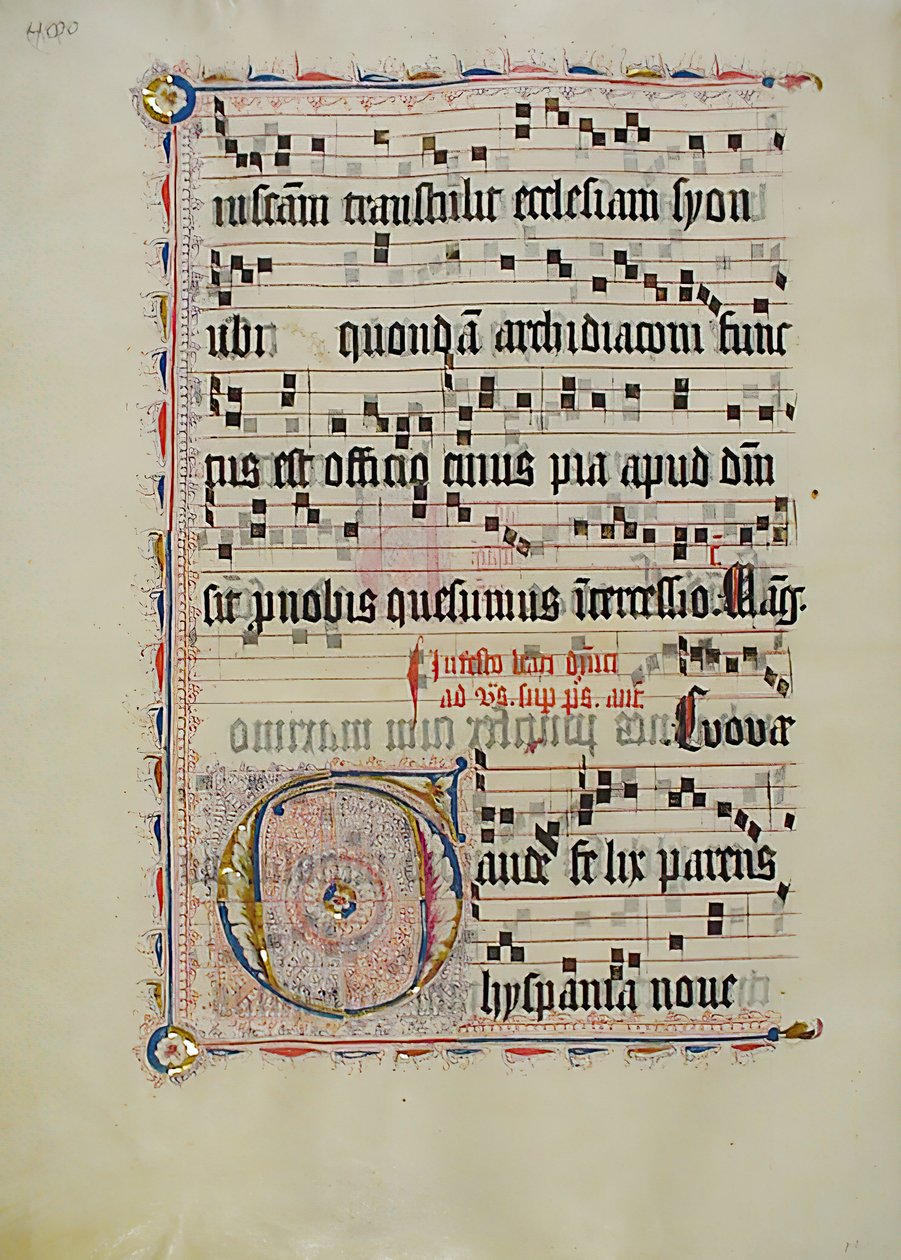 iuscām transtulit ecclesiam lyon
ubi quondā archidiaconi func
tus est officio cuius pia apud dn̄m
sit ꝓ nobis quesumus īterressio. Māg.
In festo beati dn̄ici
ad v̄s. sup p̄s. ant̄.
Euouæ
Gaude felix parens
hyspania noue